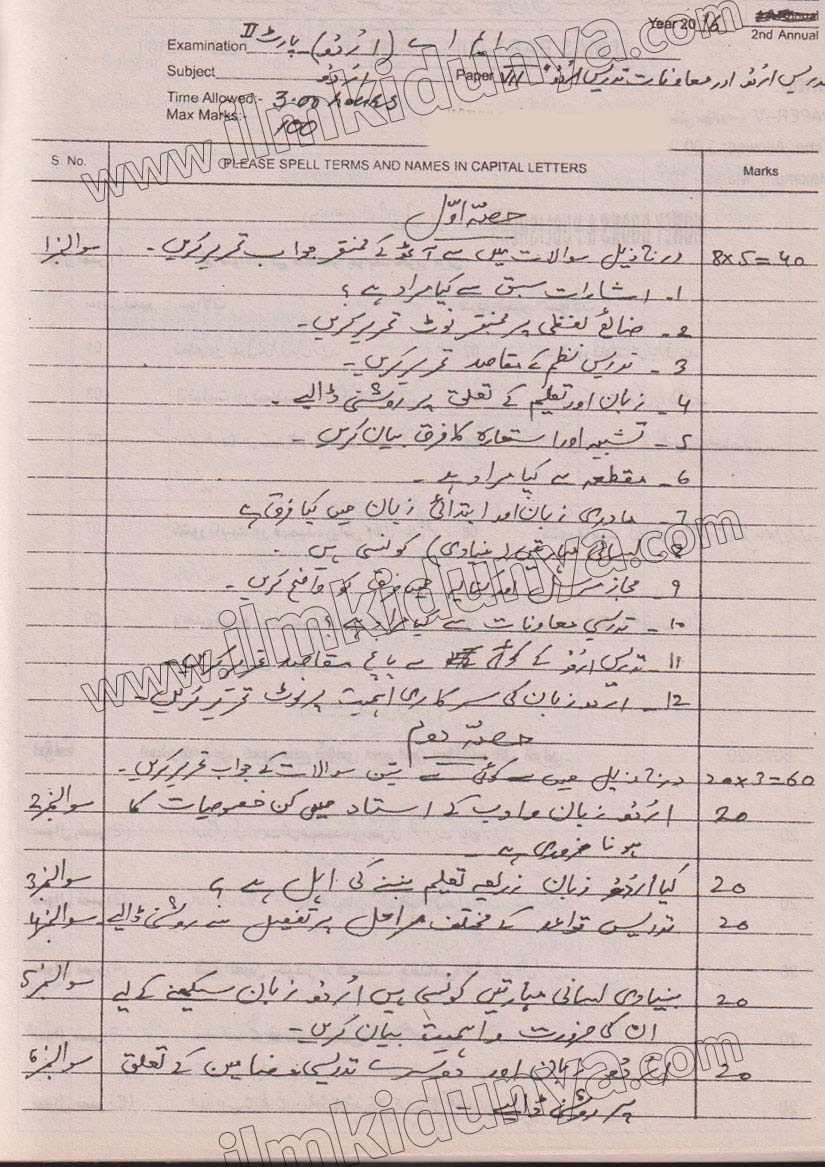 Year 2016
2nd Annual
Examination ایم اے (اردو) پارٹ II
Subject اردو Paper VII تدریس اردو اور معاونات تدریس اردو
Time Allowed:- 3:00 hours
Max Marks:- 100
S. No. PLEASE SPELL TERMS AND NAMES IN CAPITAL LETTERS Marks
حصہ اوّل
سوالنمبر1 درج ذیل سوالات میں سے آٹھ کے مختصر جواب تحریر کریں۔ 8x5=40
1۔ اشارات سبق سے کیا مراد ہے؟
2۔ صنائع لفظی پر مختصر نوٹ تحریر کریں۔
3۔ تدریس نظم کے مقاصد تحریر کریں۔
4۔ زبان اور تعلیم کے تعلق پر روشنی ڈالیے۔
5۔ تشبیہ اور استعارہ کا فرق بیان کریں۔
6۔ مقطعہ سے کیا مراد ہے۔
7۔ مادری زبان اور ابتدائی زبان میں کیا فرق ہے
8۔ لسانی مہارتیں (بنیادی) کونسی ہیں۔
9۔ مجاز مرسل اور میں فرق کو واضح کریں۔
10۔ تدریسی معاونات سے کیا مراد ہے؟
11۔ تدریس اردو کے کوئی سے پانچ مقاصد تحریر کریں۔
12۔ اردو زبان کی سرکاری اہمیت پر نوٹ تحریر کریں۔
حصہ دوم
درج ذیل میں سے کوئی سے تین سوالات کے جواب تحریر کریں۔ 20x3=60
سوالنمبر2 اردو زبان و ادب کے استاد میں کن خصوصیات کا 20
ہونا ضروری ہے۔
سوالنمبر3 کیا اردو زبان زریعہ تعلیم بننے کی اہل ہے؟ 20
سوالنمبر4 تدریس قواعد کے مختلف مراحل پر تفصیل سے روشنی ڈالیے۔ 20
سوالنمبر5 بنیادی لسانی مہارتیں کونسی ہیں اردو زبان سیکھنے کے لیے 20
ان کی ضرورت و اہمیت بیان کریں۔
سوالنمبر6 اردو زبان اور دوسرے تدریسی مضامین کے تعلق 20
پر روشنی ڈالیے۔
www.ilmkidunya.com
www.ilmkidunya.com
www.ilmkidunya.com
ilmkidunya.com